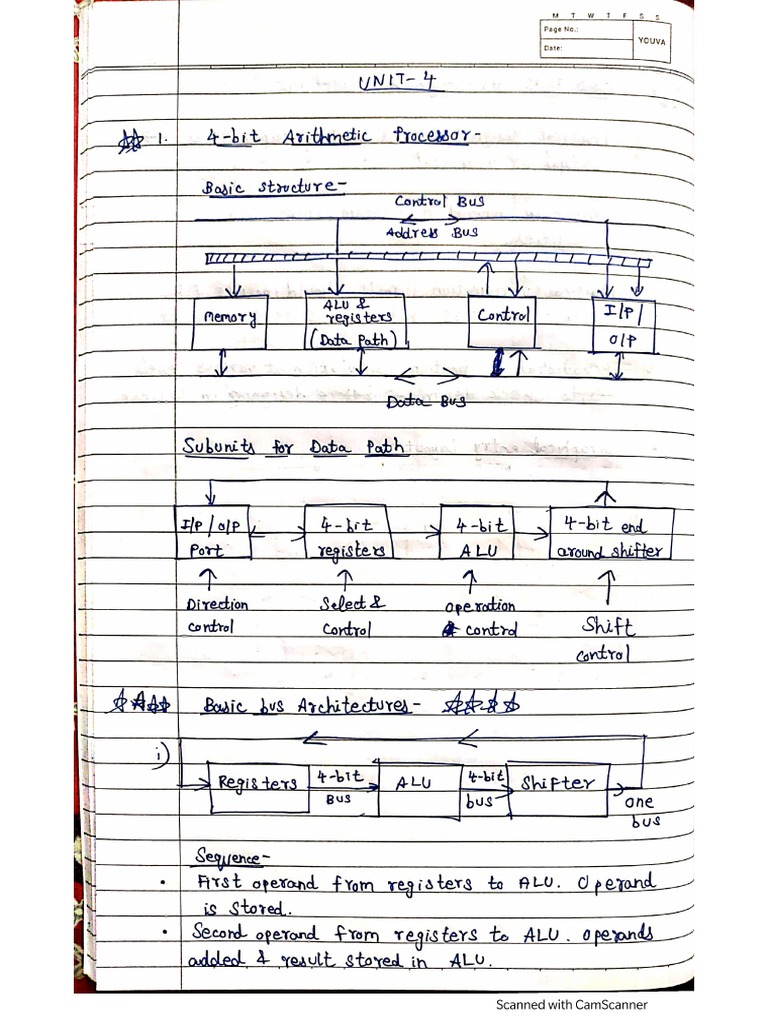 M T W T F S S
Page No.:
Date:
YOUVA
UNIT-4
1. 4-bit Arithmetic Processor-
Basic structure-
Control Bus
Address Bus
Memory
ALU &
registers
(Data Path)
Control
I/P/
O/P
Data Bus
Subunits for Data Path
I/P/O/P
Port
4-bit
registers
4-bit
ALU
4-bit end
around shifter
Direction
control
Select &
Control
operation
& control
Shift
control
Basic bus Architectures-
i)
Registers
4-bit
Bus
ALU
4-bit
bus
Shifter
one
bus
Sequence-
• First operand from registers to ALU. Operand
is stored.
• Second operand from registers to ALU. operands
added & result stored in ALU.
Scanned with CamScanner